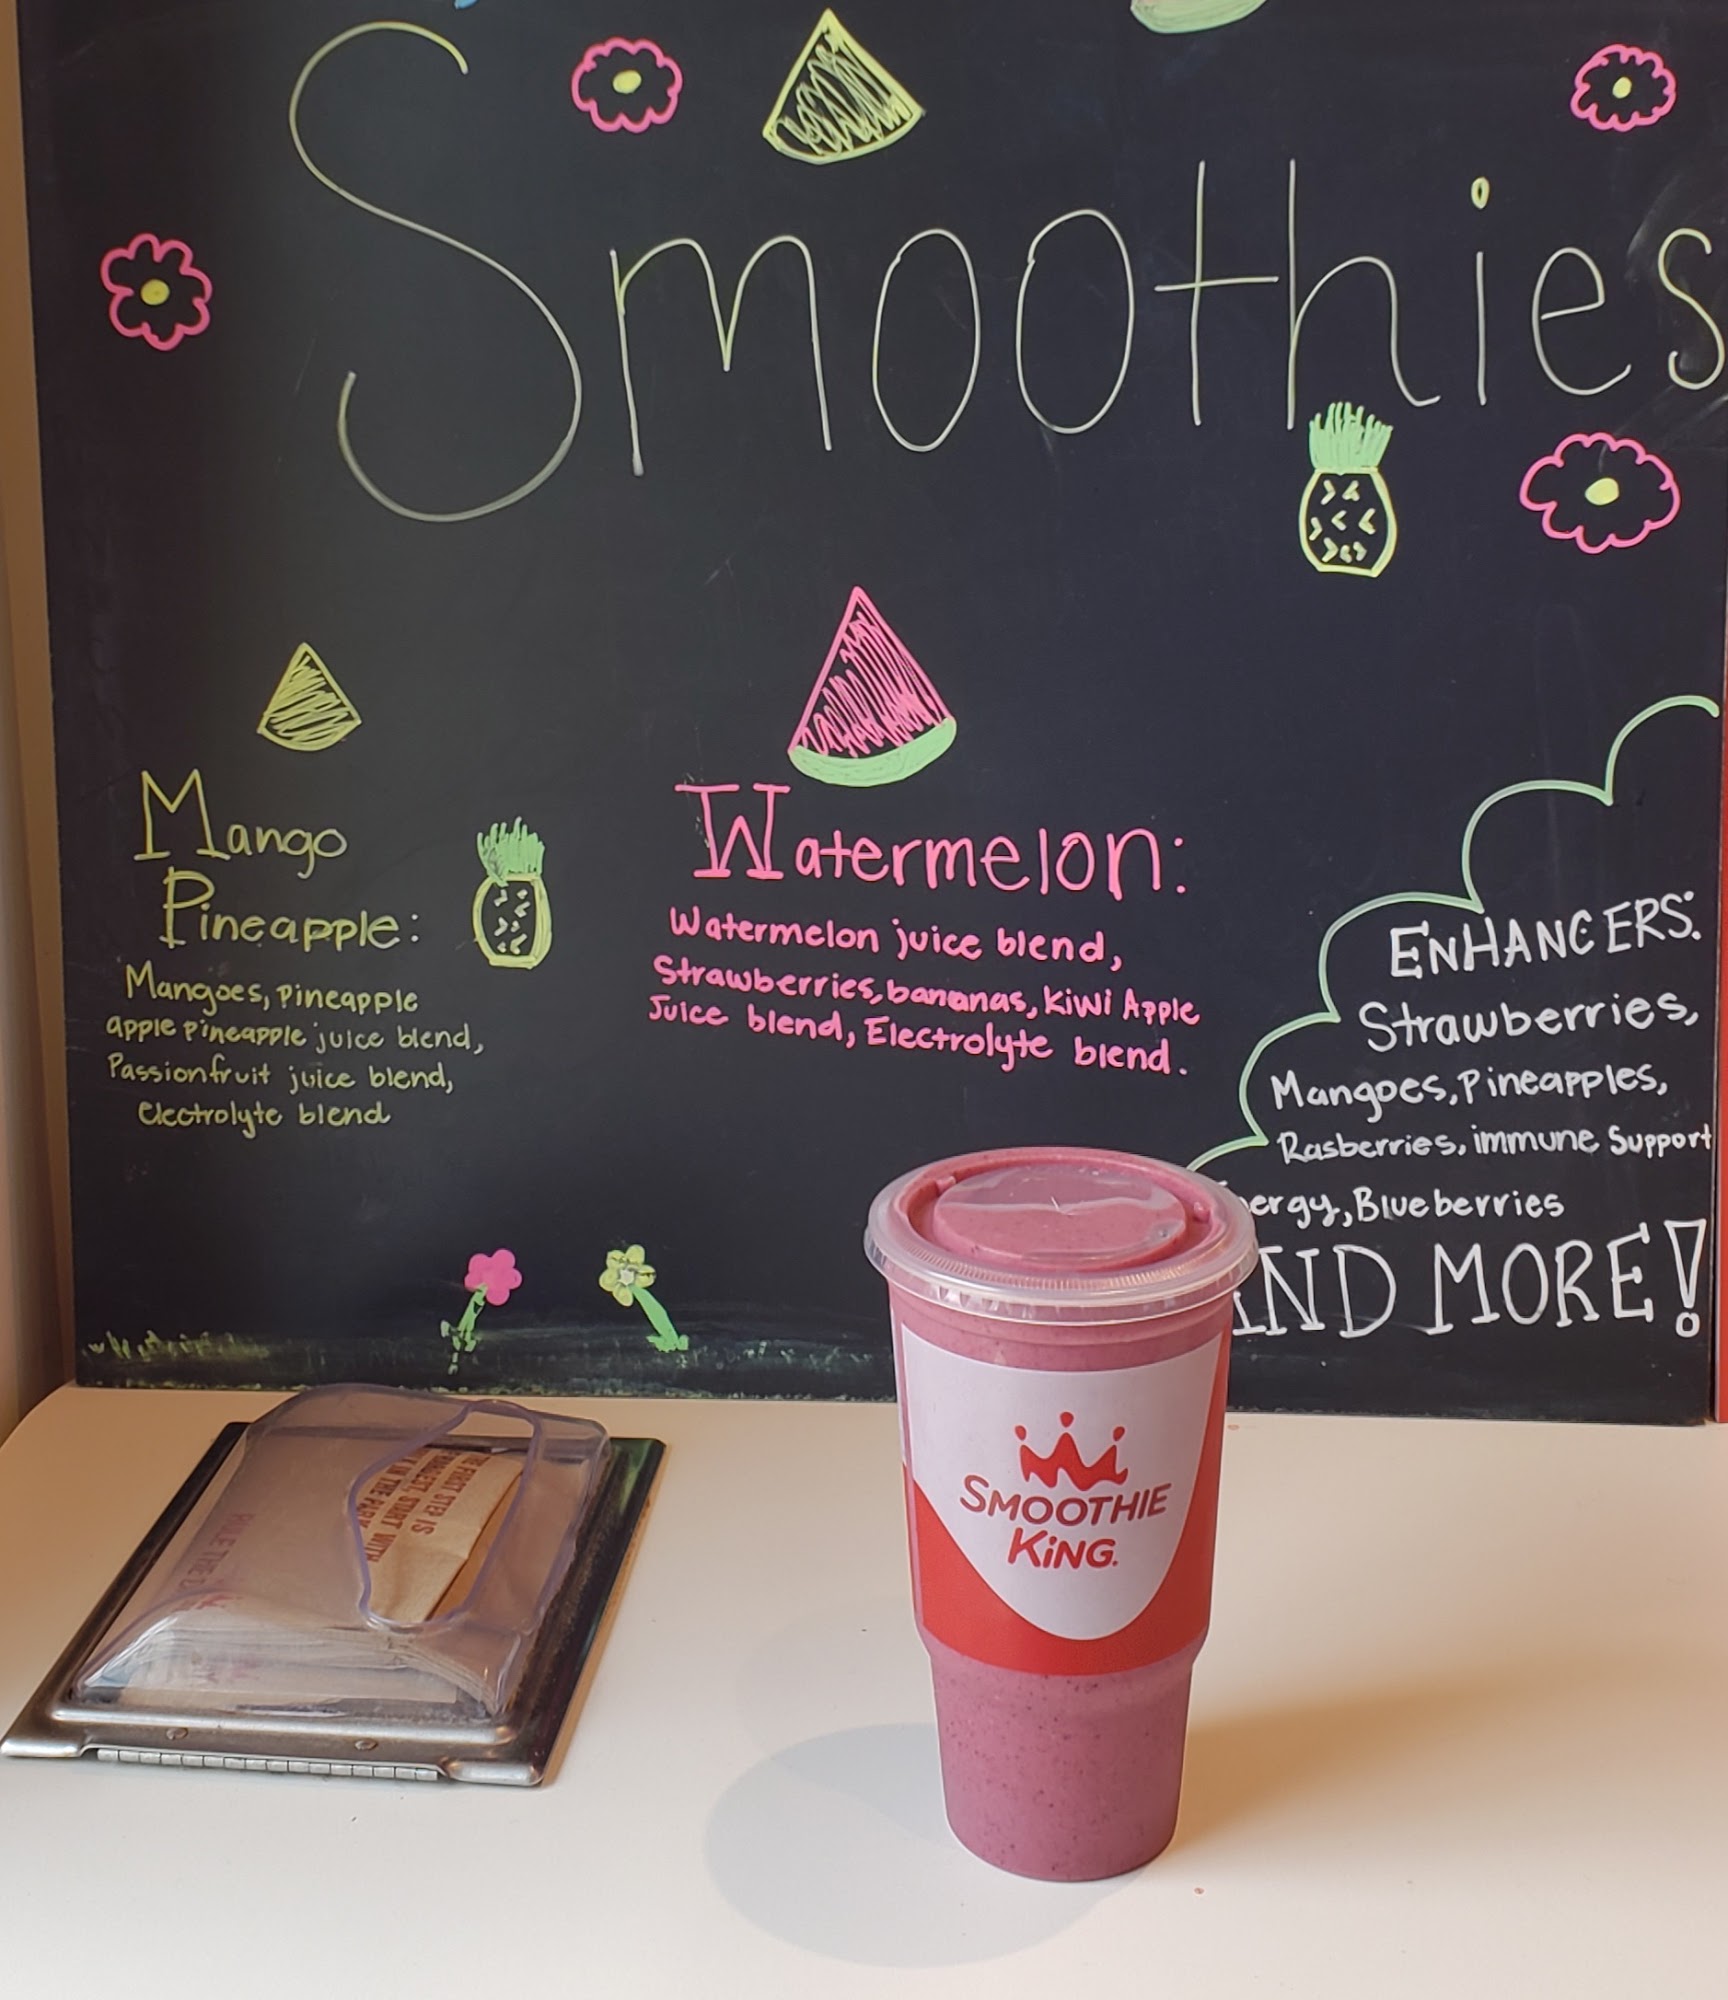 Smoothies
Mango
Pineapple:
Mangoes, Pineapple
apple pineapple juice blend,
Passionfruit juice blend,
electrolyte blend
Watermelon:
Watermelon juice blend,
Strawberries, bananas, Kiwi Apple
Juice blend, Electrolyte blend.
ENHANCERS:
Strawberries,
Mangoes, Pineapples,
Rasberries, immune Support
ergy, Blueberries
AND MORE!
SMOOTHIE
KING.
THE FIRST STEP IS
HARDEST, START WITH
IN THE PARK
RULE THE